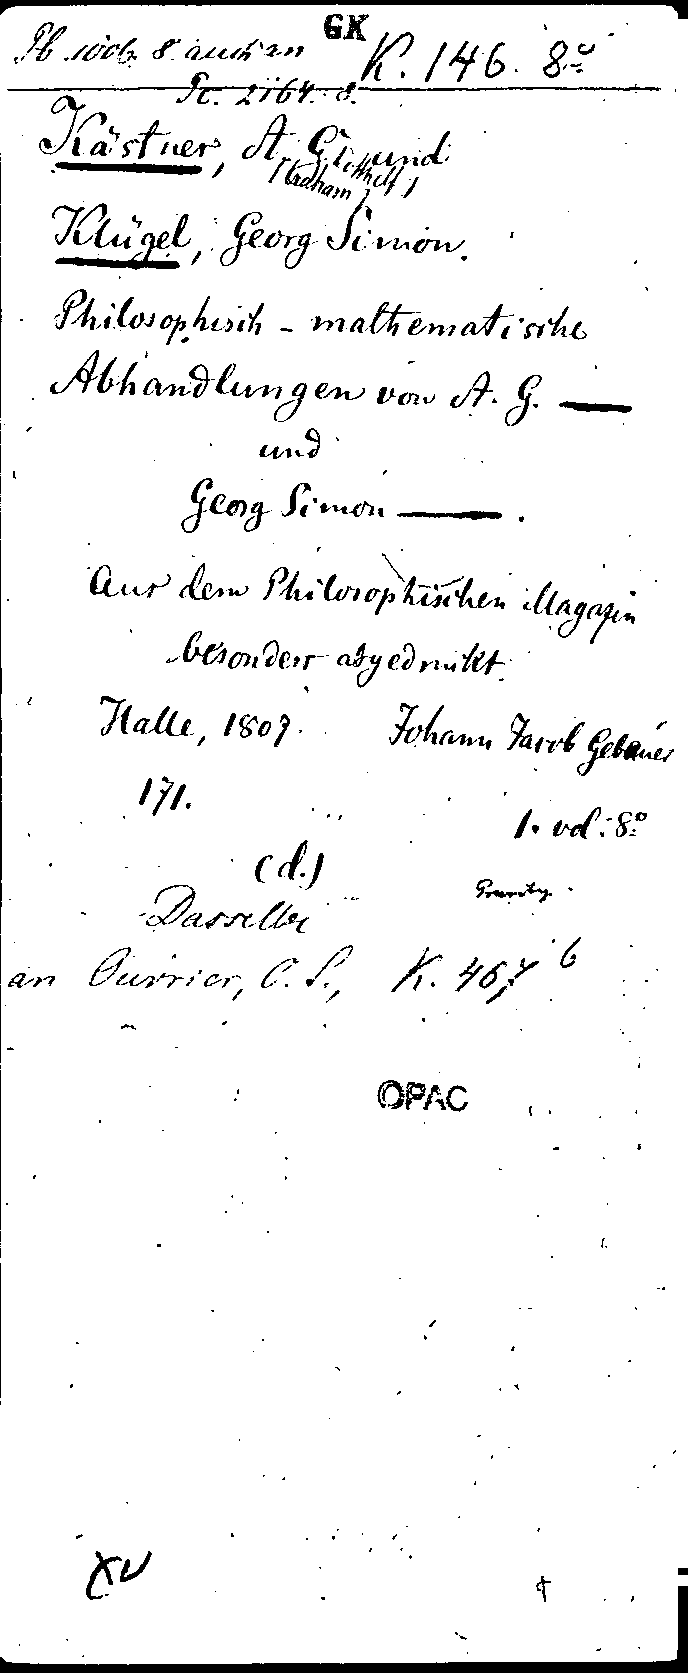 GK
Pb 1006. 8. auch an K. 146. 8º
Pc. 2164. 8.
Kästner, A. G. und
(Abraham Gotthelf)
Klügel, Georg Simon.
Philosophisch - mathematische
Abhandlungen von A. G. —
und
Georg Simon — .
Aus dem Philosophischen Magazin
besonders abgedrukt.
Halle, 1807. Johann Jacob Gebauer
171. 1. vol: 8º
(d.)
Dasselbe
an K. 467 6
OPAC
XV